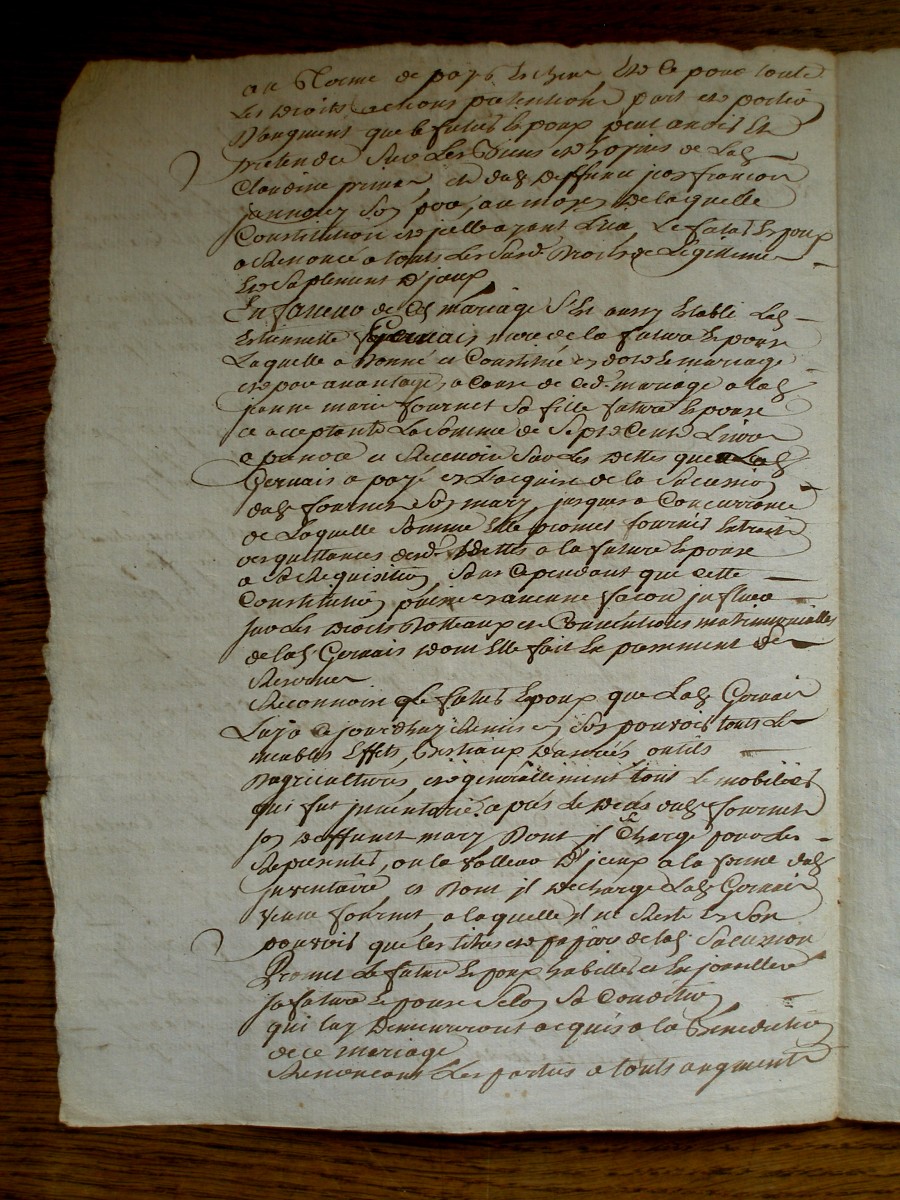 de pays et ce pour toute
Les Droits actions pretentions part et portion
D'augment que le futur Epoux peut avoir Et
pretendre Sur Les Biens et hoyries de Lad
Claudine et dud deffunt françois
jannolly Son pere, au moyen de laquelle
Constitution et ycelle ayant Lieu, Le futur Epoux
a Renoncé a touts Les Susd Droits de Legitime
Et Suplement D'jceux
En faveur de Ced mariage S'Est aussy Etabli Lad
Estiennette Gervais mere de la future Epouse
Laquelle a Donné et Constitué en dote Et mariage
et par avantage a cause de ced mariage a lad
jeanne marie fournet Sa fille future Epouse
ce acceptante La Somme de Sept Cents Livres
a prendre et Recevoir Sur Les Dettes que Lad
Gervais a payé et acquise de la Sucession
dud fournet Son mary, jusques a Concurrence
de Laquelle Somme Elle promet fournir
et quittances desd Dettes a la future Epouse
a Sa Requisition, Sans Cependant que cette
Constitution puisse en aucune facon jnfluer
Sur Les Droits Dotteaux et Conventions matrimonialles
de lad Gervais dont Elle fait Expressement de
Reserve
Reconnoit Le futur Epoux que Lad Gervais
Luy a cejourdhuy Remis en Son pouvoir touts Les
meubles Effets, Bestiaux Danrées, outils
D'agricultures, et generallement tout Le mobilier
qui fut jnventarié apres Le Deces dud fournet
Son deffunt mary Dont jl Se Charge pour Les
Representer, ou la Valleur D'jceux a la forme dud
jnventaire et Dont jl Decharge Lad Gervais
Veuve fournet, a laquelle jl ne Reste en Son
pouvoir que les titres et papiers de lad Sucession
Promet Le futur Epoux habiller et Enjoailler
Sa future Epouse Selon Sa Condition
qui luy Demeureront acquis a la Benediction
de ce mariage
Renoncant Les parties a touts augments